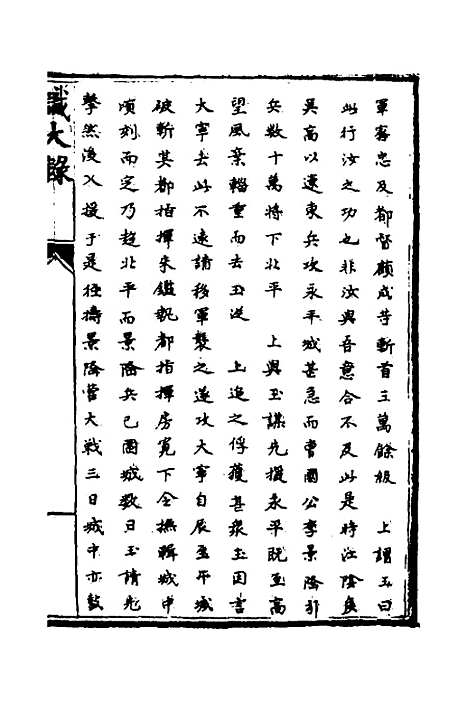 軍甯忠及都督顧成等斬首三萬餘級　上謂玉曰
此行汝之功也非汝與吾意合不及此是時江陰侯
吳高以遼東兵攻永平城甚急而曹國公李景隆引
兵數十萬將下北平　上與玉謀先援永平既至高
望風棄輜重而去玉遂　上追之俘獲甚衆玉因言
大寧去此不遠請移軍襲之遂攻大寧自辰至午城
破斬其都指揮朱鑑執都指揮房寬下令撫輯城中
頃刻而定乃趍北平而景隆兵已圍城數日玉請先
擊然後入援于是徑擣景隆營大戰三日城中亦鼓
識大錄